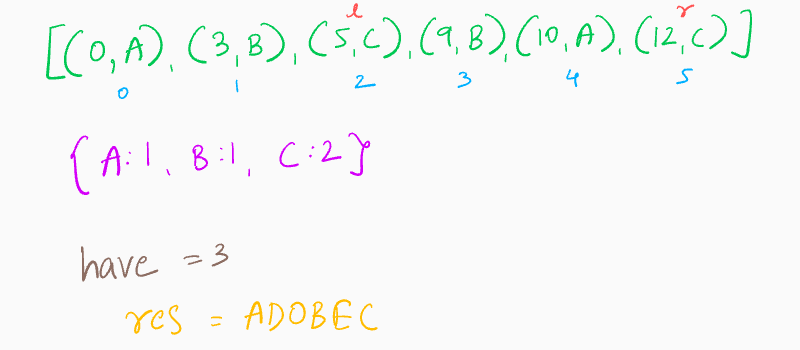 l r
[(0,A), (3,B), (5,C), (9,B), (10,A), (12,C)]
0 1 2 3 4 5
{A:1, B:1, C:2}
have = 3
res = ADOBEC